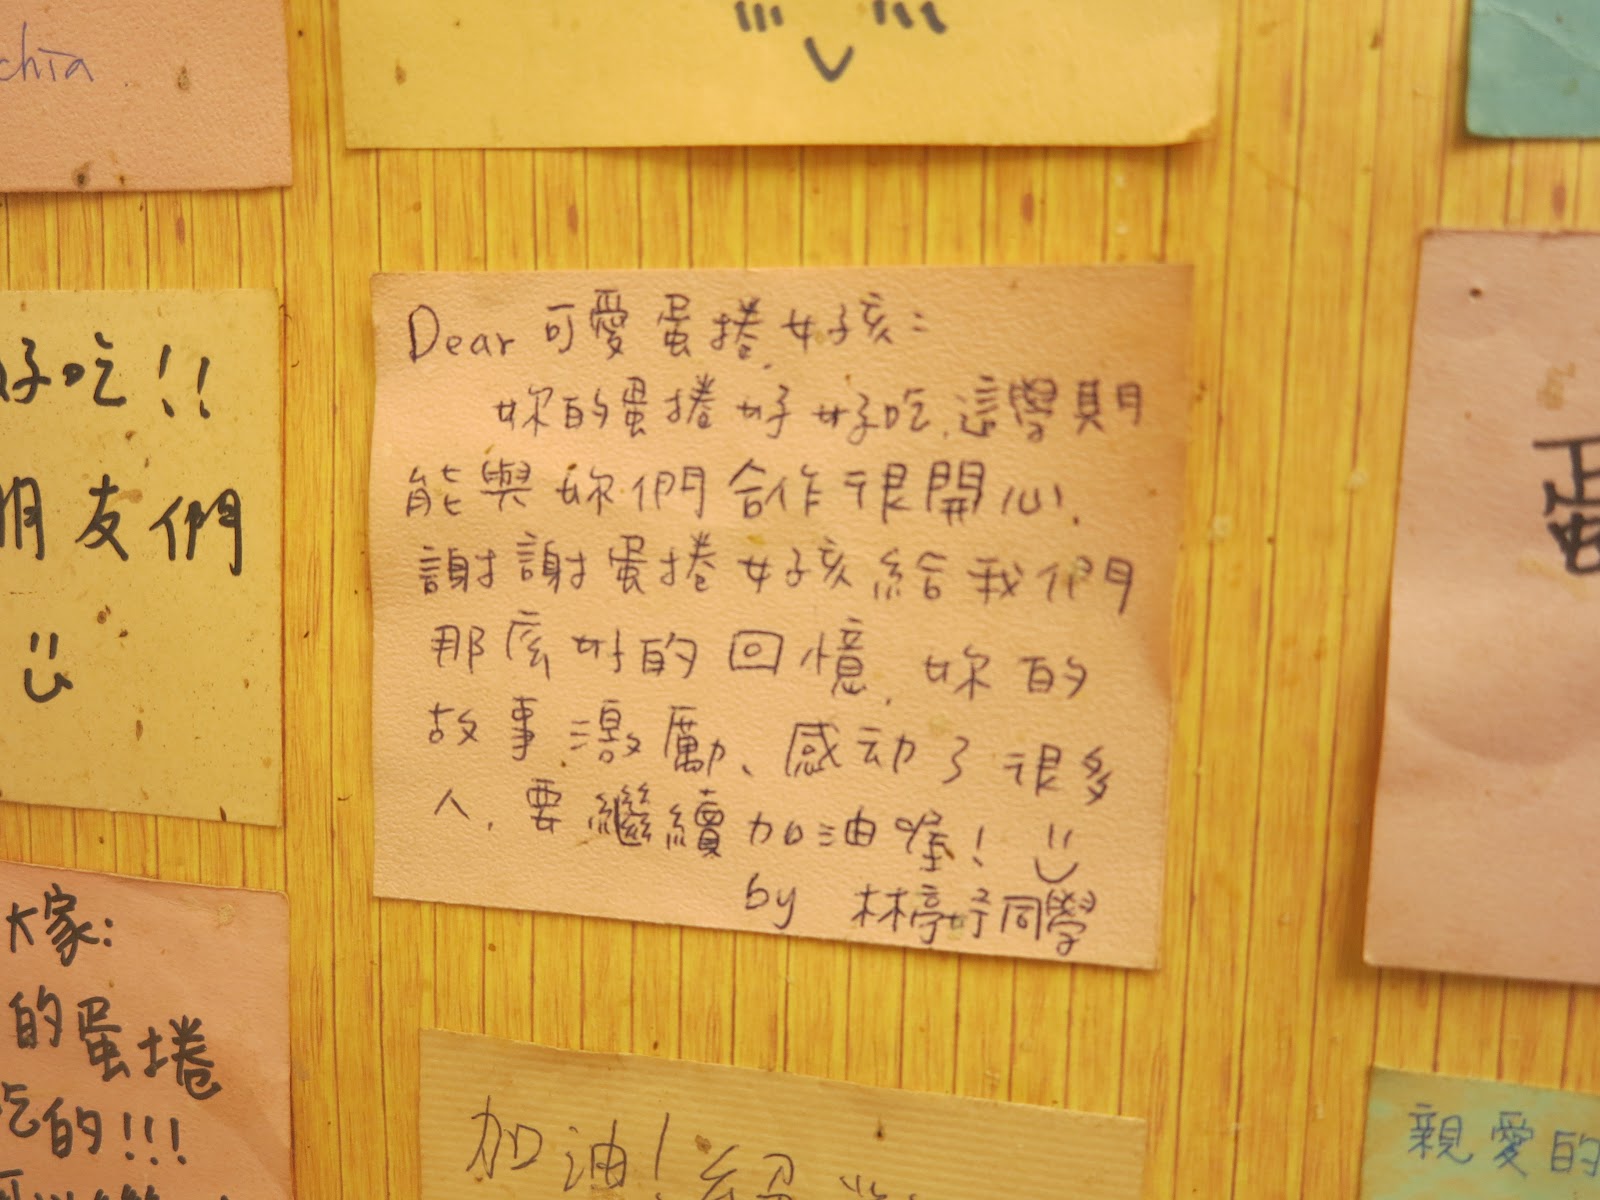 chia
好吃!!
朋友們
大家:
的蛋捲
吃的!!!
Dear 可愛蛋捲女孩:
妳的蛋捲好好吃,這學期
能與妳們合作很開心,
謝謝蛋捲女孩給我們
那麼好的回憶,妳的
故事激勵、感动了很多
人,要繼續加油喔!
by 林亭妤同學
加油!
蛋
親愛的